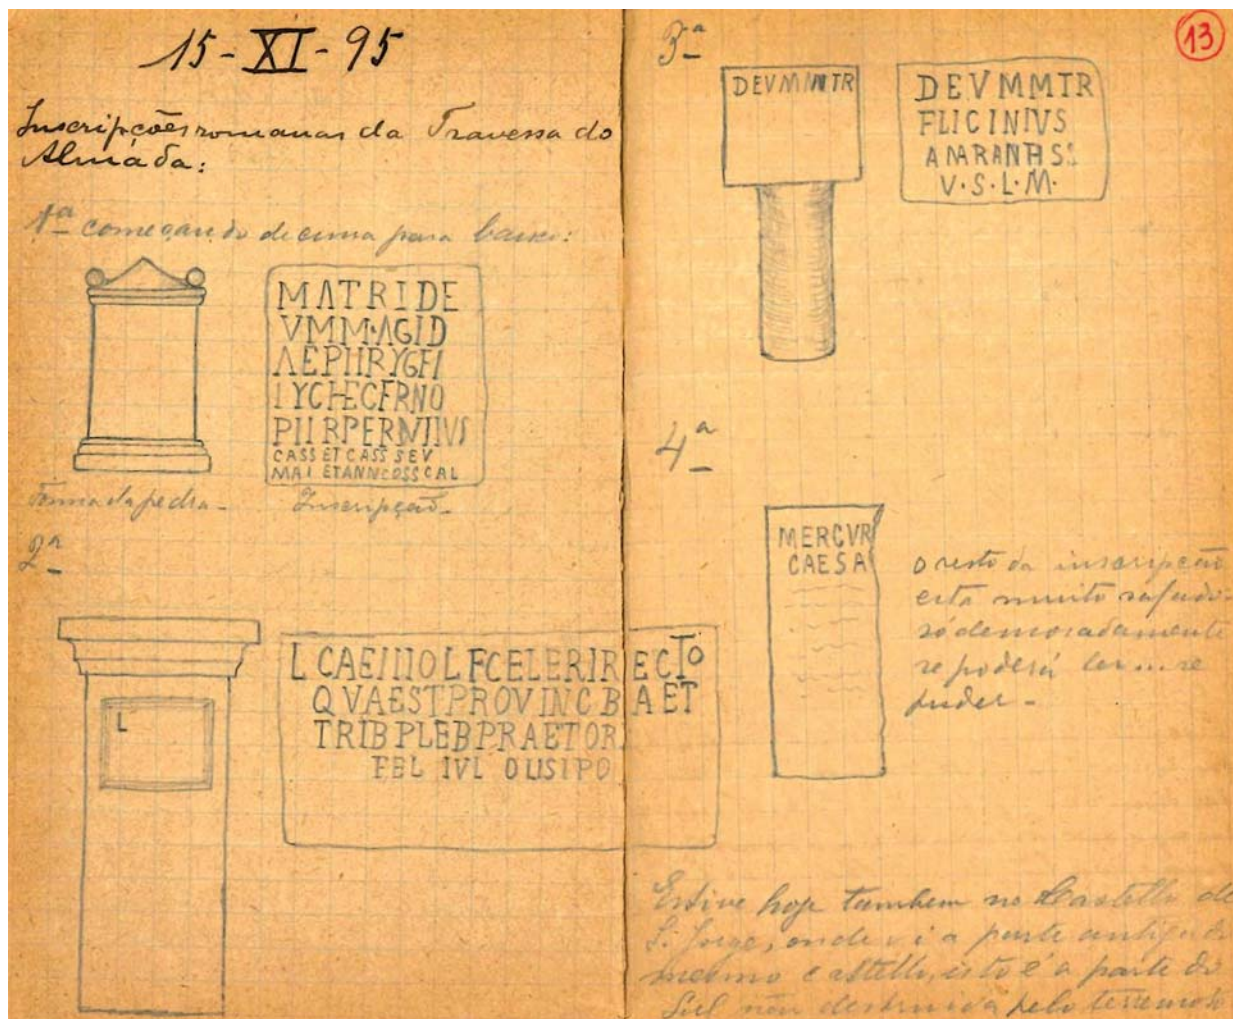 15-XI-95
Inscripções romanas da Travessa do
Almáda:
1ª começando de cima para baixo:
MATRIDE
VMM·AGID
AEPHRYGFI
IYCHECFRNO
PIIRPERNTIVS
CASS ET CASS SEV
MAI ETANNCOSSCAL
Forma da pedra-
Inscripção-
2ª
L
L CAEIIIOLFCELERIRECTO
QVAESTPROVINCBAET
TRIBPLEBPRAETOR
FEL IVL OLISIPO
13
3ª
DEVMMTR
DEVMMTR
FLICINIVS
AMARANTHSS
V·S·L·M·
4ª
MERCVR
CAESA
O resto da inscripção
está muito safado-
só demoradamente
se poderá ler se se
puder-
Estive hoje tambem no Castello de
S. Jorge, onde vi a parte antiga do
mesmo castello, isto é a parte do
Sul não destruida pelo terremoto